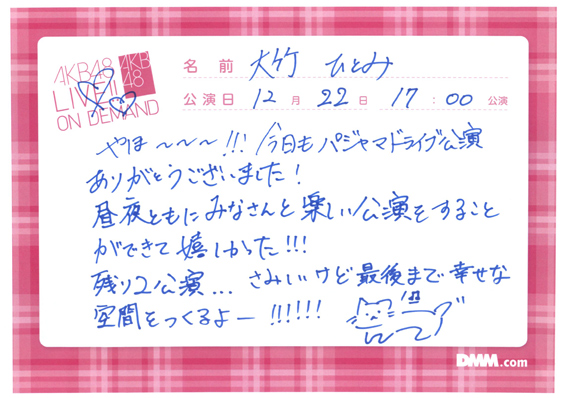 AKB48
LIVE!!
ON DEMAND
AKB
48
名前 大竹 ひとみ
公演日 12月22日 17:00公演
やほ〜〜〜!!! 今日もパジャマドライブ公演
ありがとうございました!
昼夜ともにみなさんと楽しい公演をすること
ができて嬉しかった!!!
残り2公演... さみしいけど最後まで幸せな
空間をつくるよー!!!!!!
DMM.com